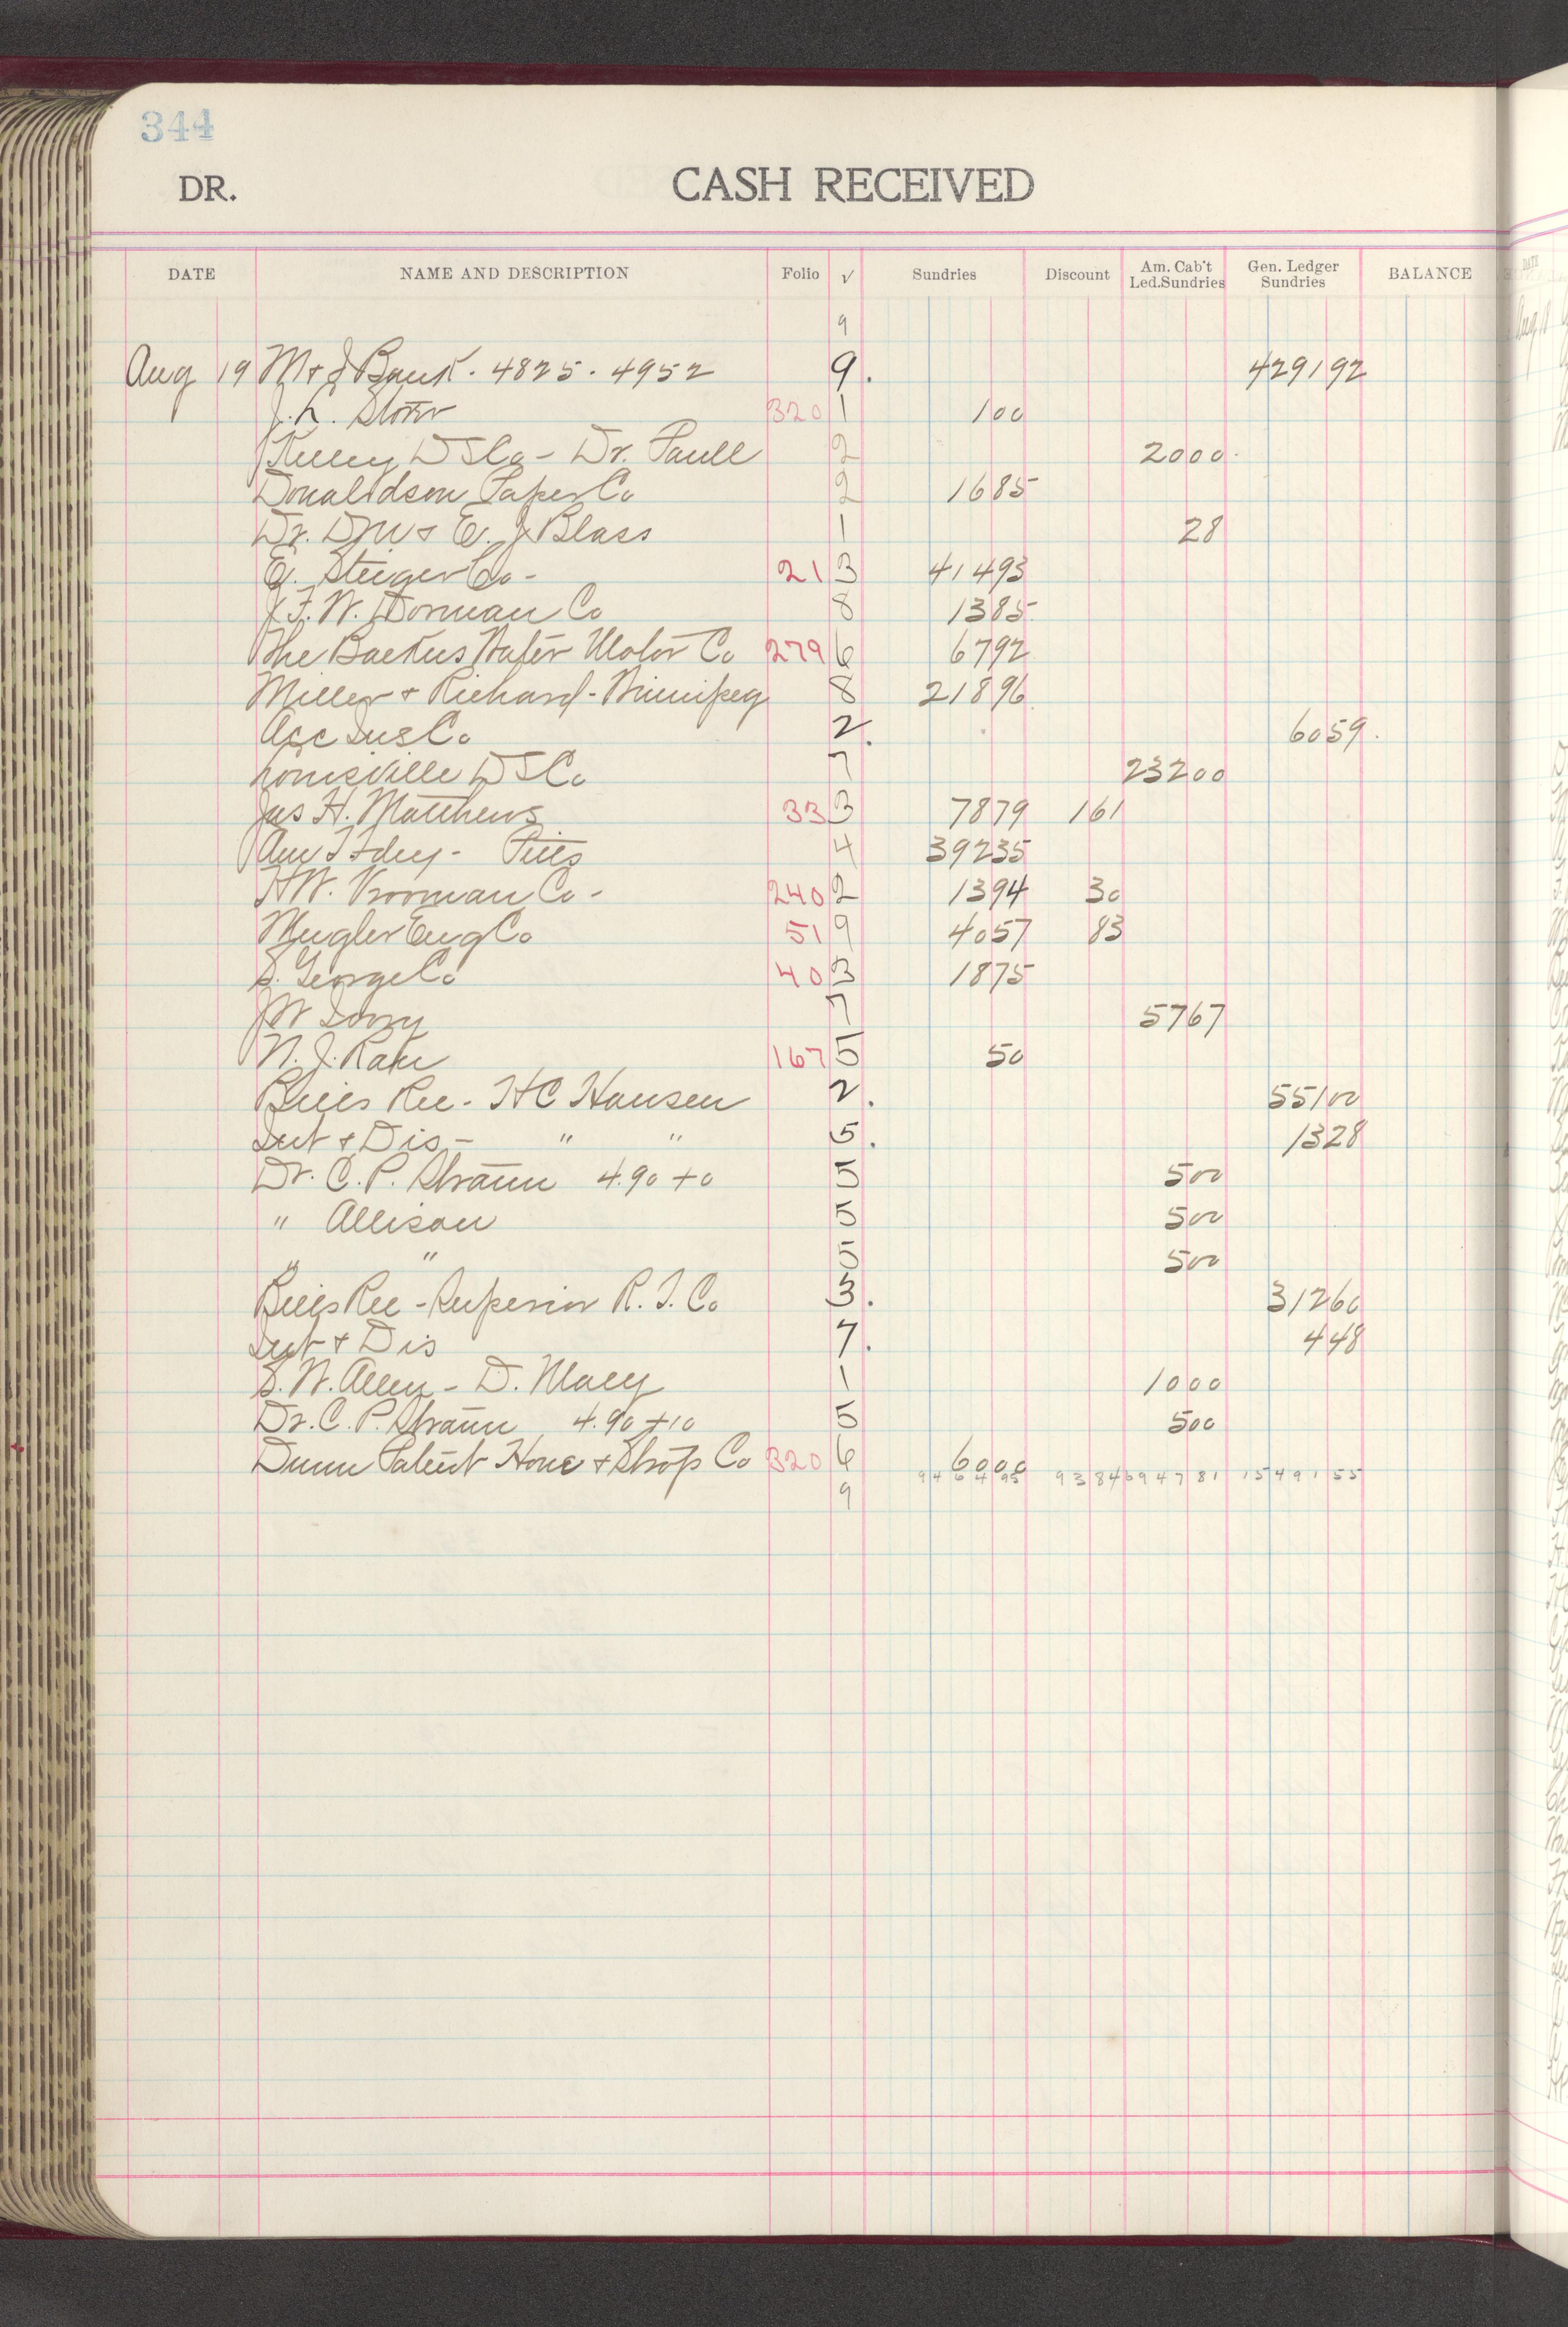 344
DR. CASH RECEIVED
DATE NAME AND DESCRIPTION Folio √ Sundries Discount Am. Cab't Led. Sundries Gen. Ledger Sundries BALANCE
9
Aug 19 M & J Bank. 4825. 4952 9. 429192
J. L. 320 1 100
Kelley D S Co - Dr. Paull 2 2000
Donaldson Paper Co 2 1685
Dr. & E. J Blass 1 28
E. Steiger Co - 21 3 41493
J. F. W. Dorman Co 8 1385
The Backus Water Motor Co 279 6 6792
Miller & Richard - Winnipeg 8 21896
Acc Ins Co 2. 6059.
Louisville D S Co 7 23200
Jas H. Matthews 33 3 7879 161
Am T Fdry - Pitts 4 39235
H W. Vrooman Co - 240 2 1394 30
Mugler Eng Co 51 9 4057 83
S. George Co 40 3 1875
J W Ivory 7 5767
N. J. 167 5 50
Bills Rec - H C Hansen 2. 55100
Int & Dis - " " 5. 1328
Dr. C. P. 4.90 + 0 5 500
" Allison 5 500
" " 5 500
Bills Rec - Superior R. T. Co 3. 31260
Int & Dis 7. 448
S. W. Allen - D. Macy 1 1000
Dr. C. P. 4.90 + 10 5 500
Dunn Patent Hone & Strop Co 320 6 6000
946495 9384 694781 1549155
9